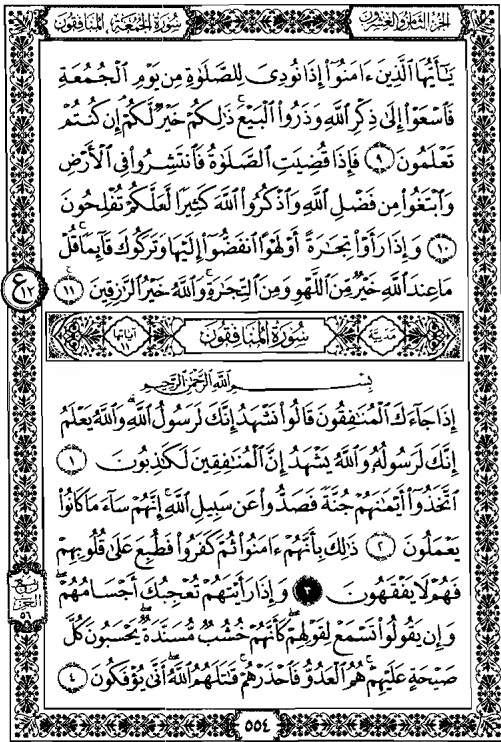 الجزء الثامن والعشرون
سورة الجمعة، المنافقون
يَٰٓأَيُّهَا ٱلَّذِينَ ءَامَنُوٓا۟ إِذَا نُودِىَ لِلصَّلَوٰةِ مِن يَوْمِ ٱلْجُمُعَةِ
فَٱسْعَوْا۟ إِلَىٰ ذِكْرِ ٱللَّهِ وَذَرُوا۟ ٱلْبَيْعَ ۚ ذَٰلِكُمْ خَيْرٌ لَّكُمْ إِن كُنتُمْ
تَعْلَمُونَ ٩ فَإِذَا قُضِيَتِ ٱلصَّلَوٰةُ فَٱنتَشِرُوا۟ فِى ٱلْأَرْضِ
وَٱبْتَغُوا۟ مِن فَضْلِ ٱللَّهِ وَٱذْكُرُوا۟ ٱللَّهَ كَثِيرًا لَّعَلَّكُمْ تُفْلِحُونَ
١٠ وَإِذَا رَأَوْا۟ تِجَٰرَةً أَوْ لَهْوًا ٱنفَضُّوٓا۟ إِلَيْهَا وَتَرَكُوكَ قَآئِمًا ۚ قُلْ
مَا عِندَ ٱللَّهِ خَيْرٌ مِّنَ ٱللَّهْوِ وَمِنَ ٱلتِّجَٰرَةِ ۚ وَٱللَّهُ خَيْرُ ٱلرَّٰزِقِينَ ١١
ع ١٢
مدنية
سورة المنافقون
آياتها ١١
بِسْمِ ٱللَّهِ ٱلرَّحْمَٰنِ ٱلرَّحِيمِ
إِذَا جَآءَكَ ٱلْمُنَٰفِقُونَ قَالُوا۟ نَشْهَدُ إِنَّكَ لَرَسُولُ ٱللَّهِ ۗ وَٱللَّهُ يَعْلَمُ
إِنَّكَ لَرَسُولُهُۥ وَٱللَّهُ يَشْهَدُ إِنَّ ٱلْمُنَٰفِقِينَ لَكَٰذِبُونَ ١
ٱتَّخَذُوٓا۟ أَيْمَٰنَهُمْ جُنَّةً فَصَدُّوا۟ عَن سَبِيلِ ٱللَّهِ ۚ إِنَّهُمْ سَآءَ مَا كَانُوا۟
يَعْمَلُونَ ٢ ذَٰلِكَ بِأَنَّهُمْ ءَامَنُوا۟ ثُمَّ كَفَرُوا۟ فَطُبِعَ عَلَىٰ قُلُوبِهِمْ
فَهُمْ لَا يَفْقَهُونَ ٣ وَإِذَا رَأَيْتَهُمْ تُعْجِبُكَ أَجْسَامُهُمْ ۖ
وَإِن يَقُولُوا۟ تَسْمَعْ لِقَوْلِهِمْ ۖ كَأَنَّهُمْ خُشُبٌ مُّسَنَّدَةٌ ۖ يَحْسَبُونَ كُلَّ
صَيْحَةٍ عَلَيْهِمْ ۚ هُمُ ٱلْعَدُوُّ فَٱحْذَرْهُمْ ۚ قَٰتَلَهُمُ ٱللَّهُ ۖ أَنَّىٰ يُؤْفَكُونَ ٤
ربع
الحزب
٥٦
٥٥٤